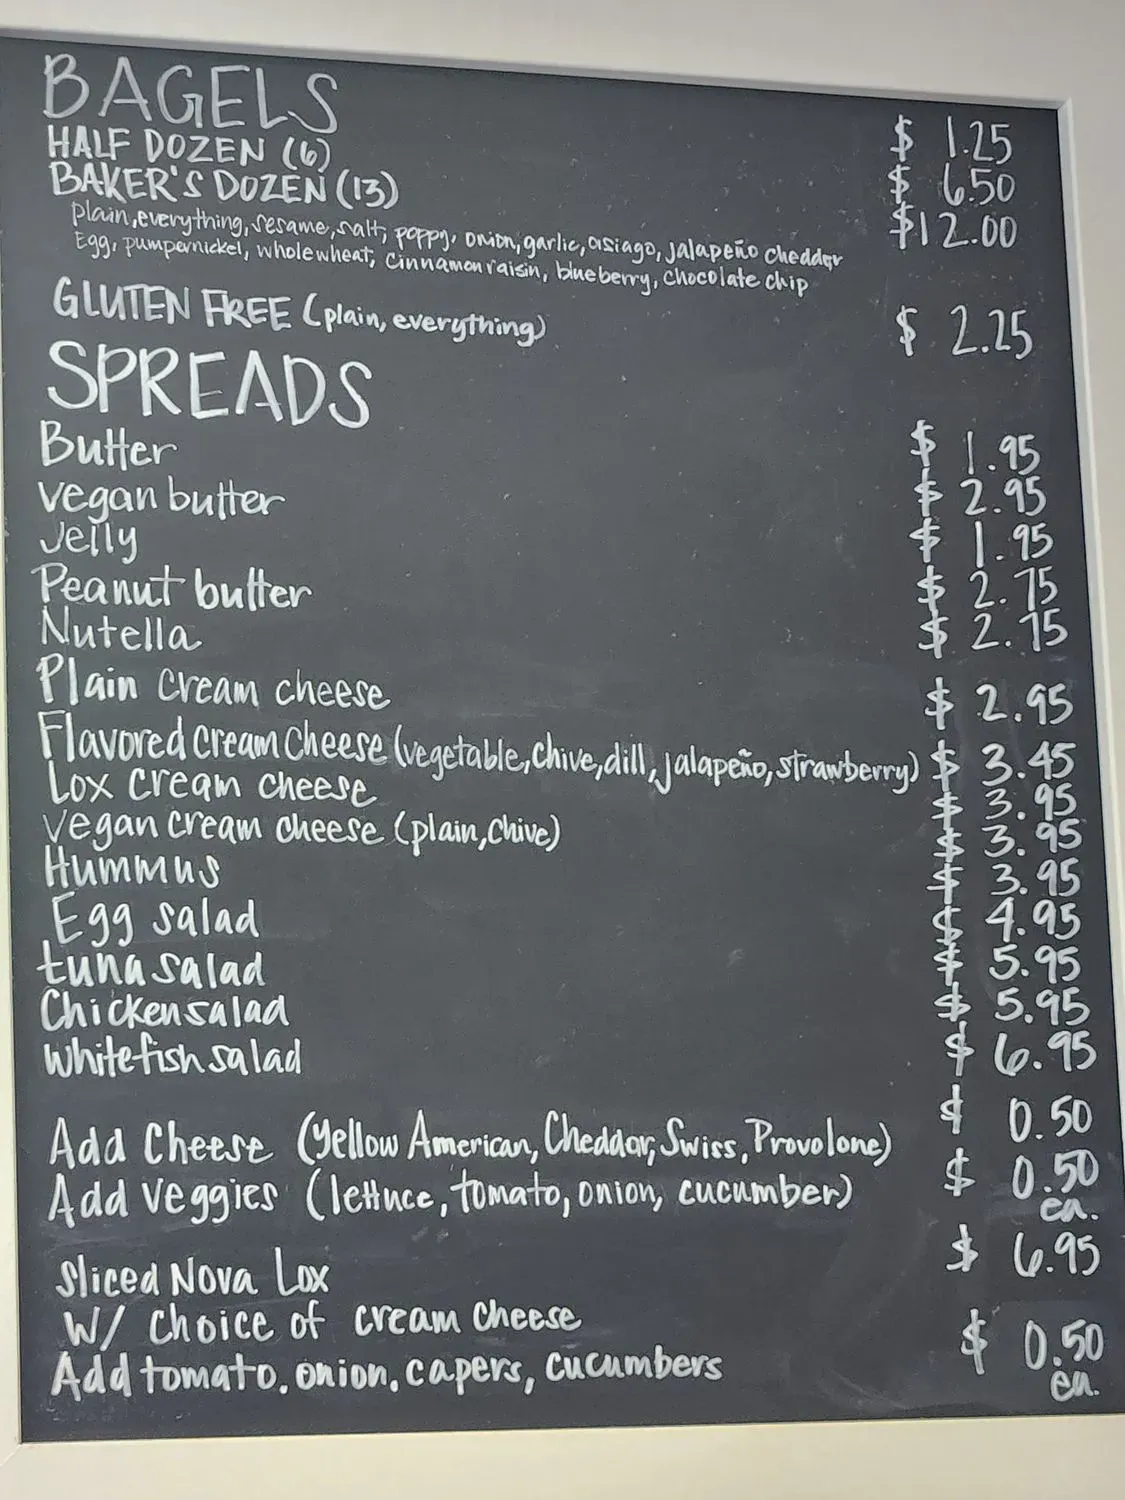 BAGELS $ 1.25
HALF DOZEN (6) $ 6.50
BAKER'S DOZEN (13) $12.00
plain, everything, sesame, salt, poppy, onion, garlic, asiago, jalapeño cheddar
Egg, pumpernickel, whole wheat, cinnamon raisin, blueberry, chocolate chip
GLUTEN FREE (plain, everything) $ 2.25
SPREADS
Butter $ 1.95
vegan butter $ 2.95
Jelly $ 1.95
Peanut butter $ 2.75
Nutella $ 2.75
Plain cream cheese $ 2.95
Flavored cream cheese (vegetable, chive, dill, jalapeño, strawberry) $ 3.45
Lox cream cheese $ 3.95
vegan cream cheese (plain, chive) $ 3.95
Hummus $ 3.95
Egg salad $ 4.95
tuna salad $ 5.95
Chicken salad $ 5.95
whitefish salad $ 6.95
Add Cheese (Yellow American, Cheddar, Swiss, Provolone) $ 0.50
Add veggies (lettuce, tomato, onion, cucumber) $ 0.50 ea.
Sliced Nova Lox $ 6.95
W/ choice of cream cheese
Add tomato, onion, capers, cucumbers $ 0.50 ea.